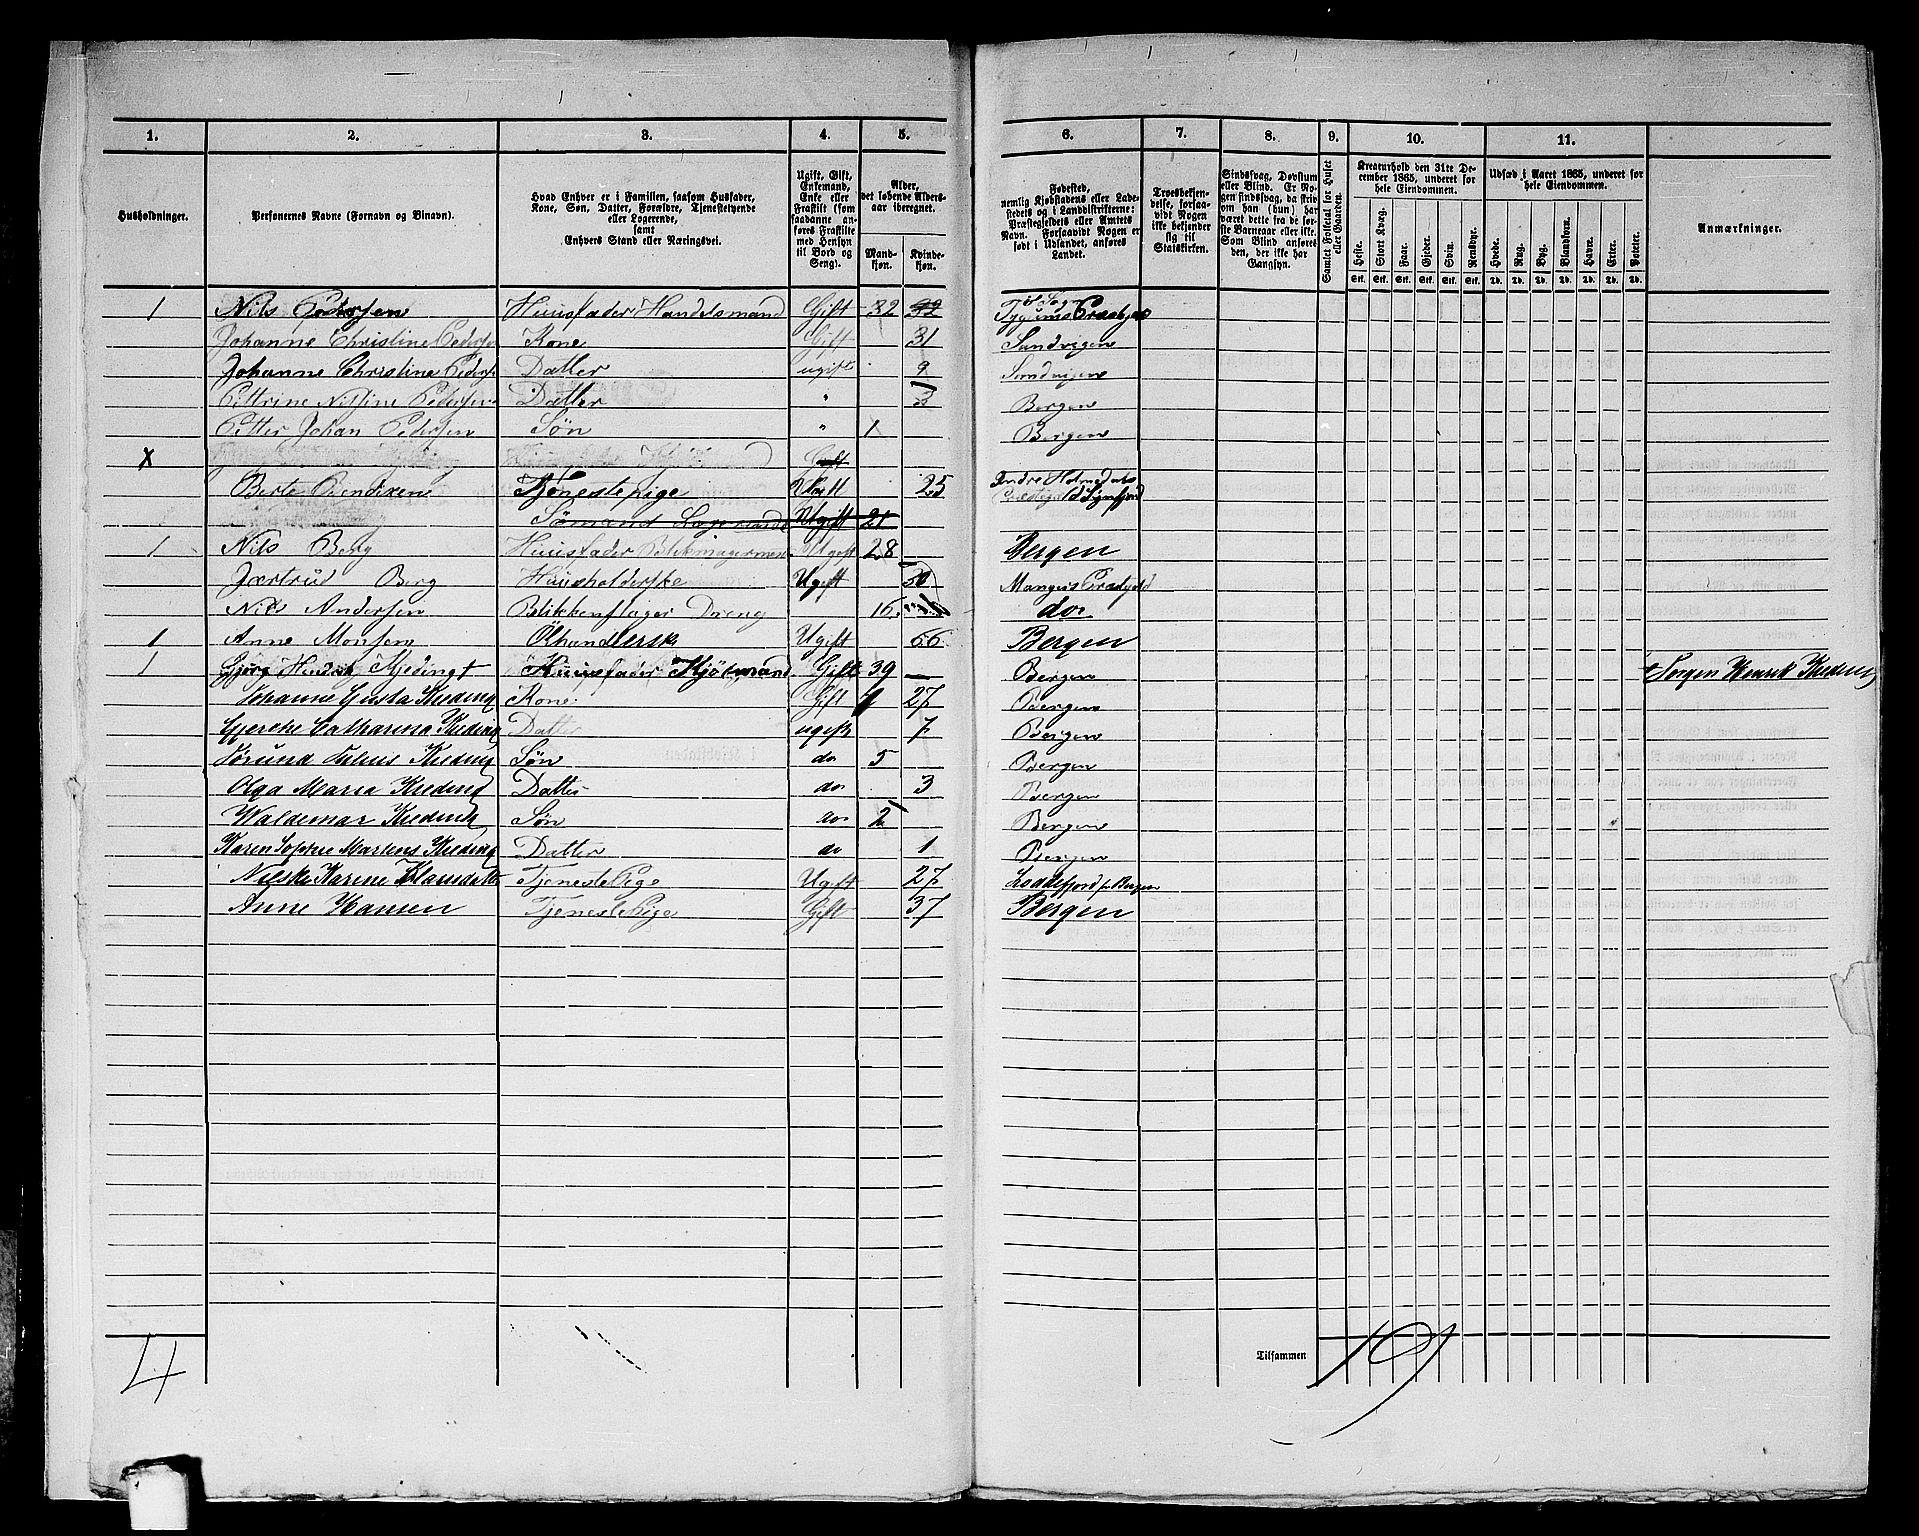 1. 2. 3. 4. 5. 6. 7. 8. 9. 10. 11.
Husholdninger.
Personernes Navne (Fornavn og Binavn).
Hvad Enhver er i Familien, saasom Husfader,
Kone, Søn, Datter, Forældre, Tjenestetyende
eller Logerende,
samt
Enhvers Stand eller Næringsvei.
Ugift, Gift,
Enkemand,
Enke eller
Fraskilt (som
saadanne an-
føres Fraskilte
med Hensyn
til Bord og
Seng).
Alder,
det løbende Alders-
aar iberegnet.
Mand-
kjøn.
Kvinde-
kjøn.
Fødested,
nemlig Kjøbstadens eller Lade-
stedets og i Landdistrikterne:
Præstegjeldets eller Amtets
Navn. Forsaavidt Nogen er
født i Udlandet, anføres
Landet.
Troesbekjen-
delse, forsaa-
vidt Nogen
ikke bekjender
sig til
Statskirken.
Sindssvag, Døvstum
eller Blind. Er No-
gen sindssvag, da skriv
om han (hun) har
været dette fra de før-
ste Barneaar eller ikke.
Som Blind anføres
den, der ikke har
Gangsyn.
Samlet Folketal for Huset
eller Gaarden.
Kreaturhold den 31te De-
cember 1865, underet for
hele Eiendommen.
Heste. Stort Kvæg. Faar. Gjeder. Svin. Rensdyr.
Stk. Stk. Stk. Stk. Stk. Stk.
Udsæd i Aaret 1865, underet for
hele Eiendommen.
Hvede. Rug. Byg. Blandkorn. Havre. Erter. Poteter.
Td. Td. Td. Td. Td. Td. Td.
Anmærkninger.
1 Nils Pedersen Huusfader Handelsmand Gift 32
Johanne Christine Pedersen Kone Gift 31 Sandvigen
Johanne Christine Datter ugift 9 Sandvigen
Pettrine Nilsine Pedersen Datter " 3 Bergen
Petter Johan Pedersen Søn " 1 Bergen
X Gift
Berte Bendixen Tjenestepige Ugift 25 Indre Holmedals
Sømand Logerende Ugift 21
1 Nils Berg Huusfader Ugift 28 Bergen
Jertrud Berg Huusholderske Ugift 30 Mangers
Nils Andersen Blikkenslager Dreng 16 do
1 Anne Monsen Ølhandlersk Ugift 66 Bergen
1 Huusfader Gift 39 Bergen + Jørgen Henrik Kieding
Johanne Gusta Kieding Kone Gift 27 Bergen
Catharina Kieding Datter ugift 7 Bergen
Kieding Søn do 5 Bergen
Olga Maria Kieding Datter do 3 Bergen
Waldemar Kieding Søn do 2 Bergen
Karen Sophie Martens Kieding Datter do 1 Bergen
Karine Tjeneste Pige Ugift 27 Loddefjord Bergen
Anne Hansen Tjeneste Pige Gift 37 Bergen
4
Tilsammen 19